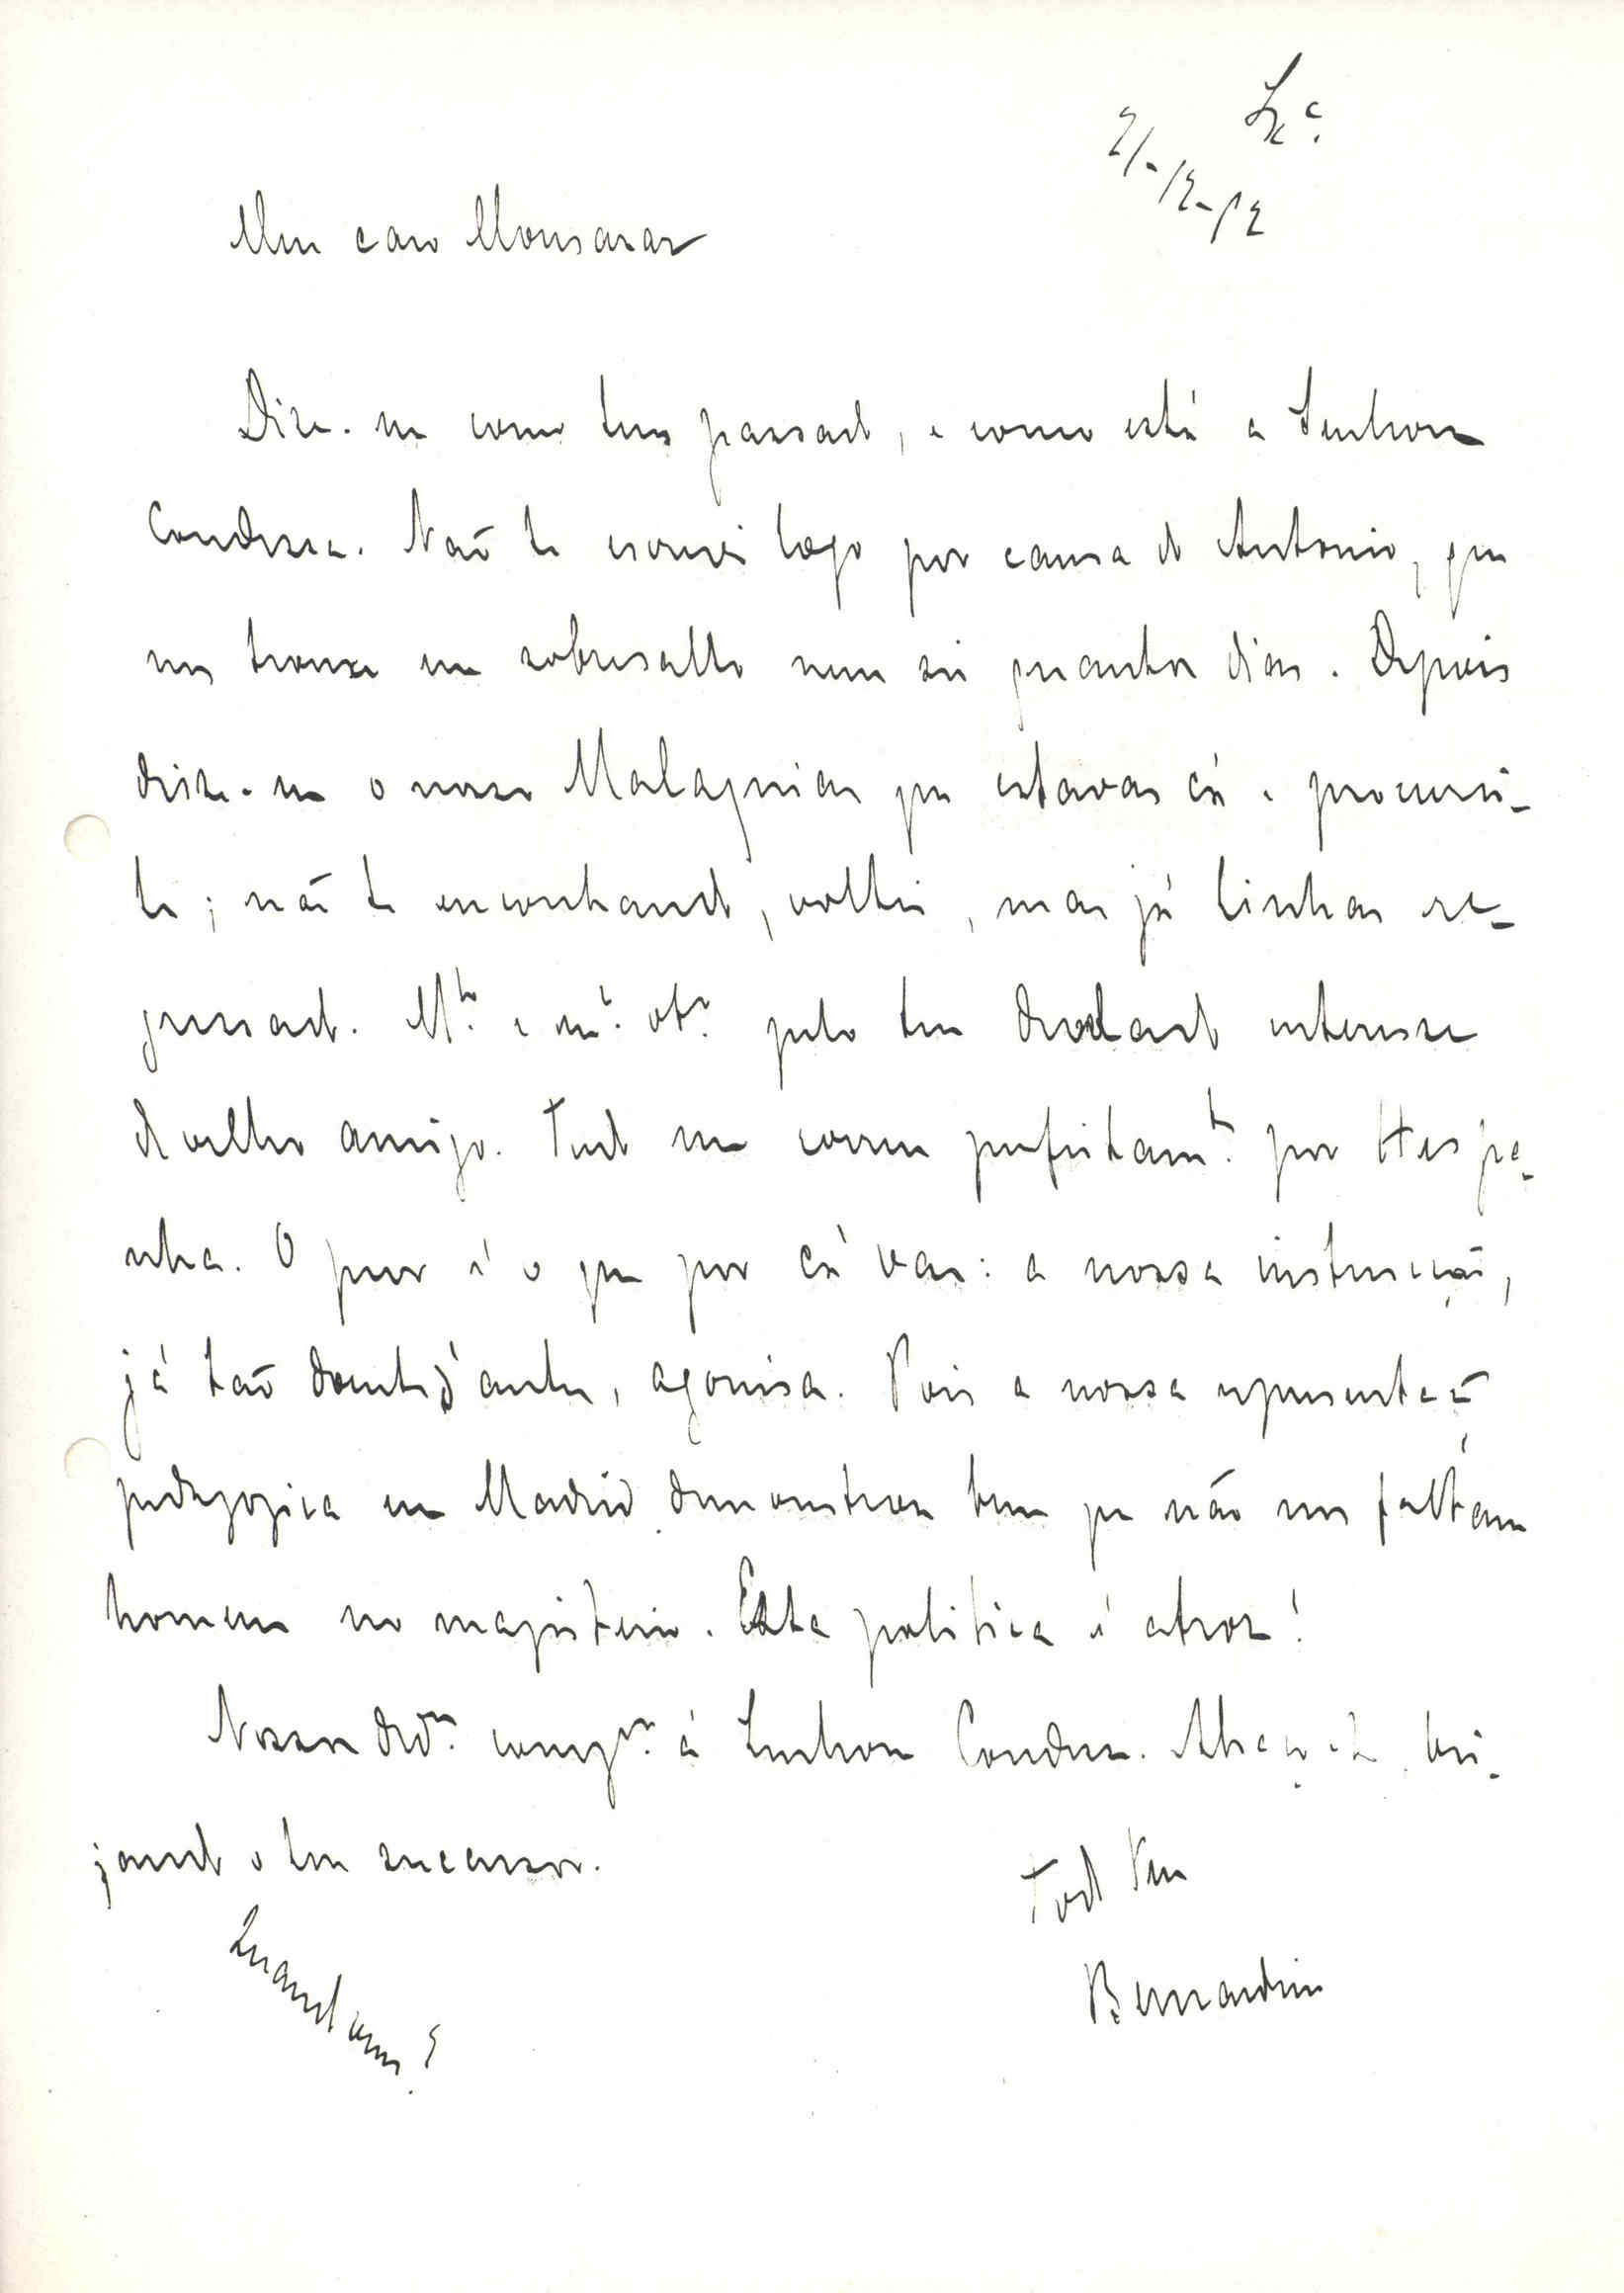 Lx.ª
21-12-92
Meu caro Monsaraz
Dize-me como tens passado, e como está a Senhora
Condessa. Não te escrevi logo por causa do Antonio, que
nos trouxe em sobresalto nem sei quantos dias. Depois
disse-me o nosso Malaquias que estavas cá e procurei-
te; não te encontrando, voltei, mas já tinhas re-
gressado. M.to e m.to ob.do pelo teu dedicado interesse
de velho amigo. Tudo me correu perfeitam.te por Hespa-
nha. O peor é o que por cá vae: a nossa instrucção,
já tão doente d'antes, agonisa. Pois a nossa representação
pedagogica em Madrid demonstrou bem que não nos faltam
homens no magisterio. Esta politica é atroz!
Nossos ded.os cump.tos á Senhora Condessa. Abraça-te, bei-
jando o teu successor.
Todo Teu
Bernardino
Quando vens?